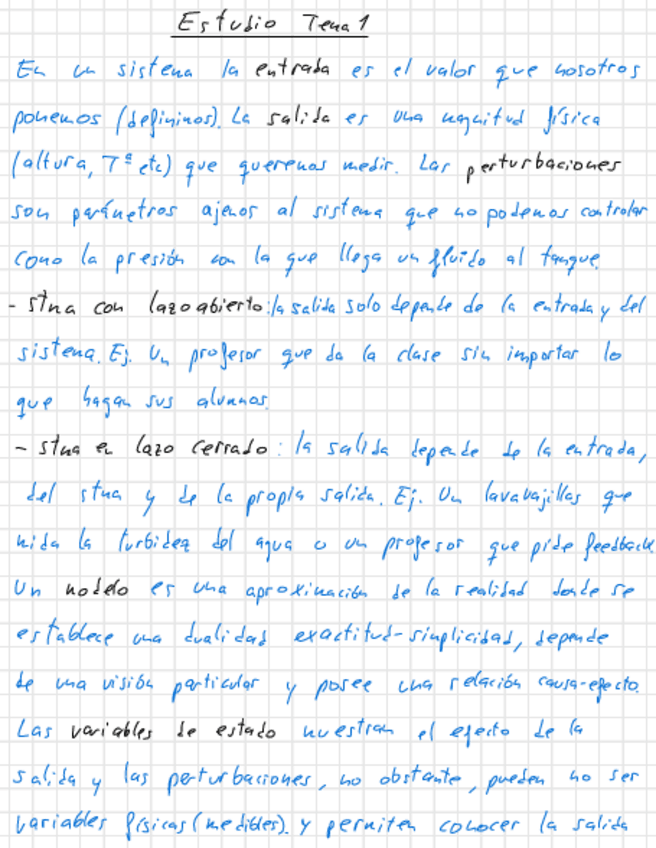 Estudio Tema 1
En un sistema la entrada es el valor que nosotros
ponemos (definimos). La salida es una magnitud física
(altura, Tª etc) que queremos medir. Las perturbaciones
son parámetros ajenos al sistema que no podemos controlar
como la presión con la que llega un fluido al tanque.
- stma con lazo abierto: la salida solo depende de la entrada y del
sistema. Ej. Un profesor que da la clase sin importar lo
que hagan sus alumnos.
- stma en lazo cerrado: la salida depende de la entrada,
del stma y de la propia salida. Ej. Un lavavajillas que
mida la turbidez del agua o un profesor que pide feedback
Un modelo es una aproximación de la realidad donde se
establece una dualidad exactitud-simplicidad, depende
de una visión particular y posee una relación causa-efecto.
Las variables de estado muestran el efecto de la
salida y las perturbaciones, no obstante, pueden no ser
variables físicas (medibles). y permiten conocer la salida